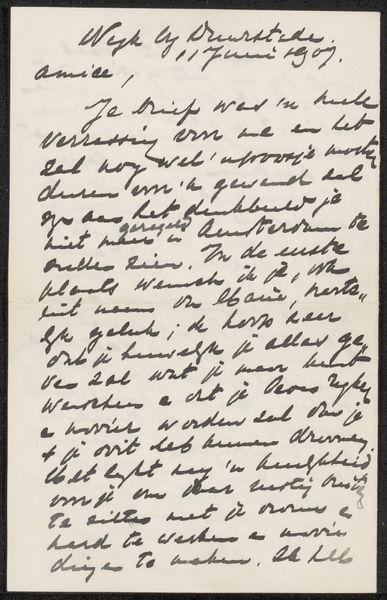 Wyk by Duurstede.
11 Juni 1907.
Amice,
Je brief was 'n heele
verrassing voor me en het
zal nog wel 'n poosje moeten
duren voor 'k gewend zal
zijn aan het denkbeeld je
niet meer geregeld in Amsterdam te
zullen zien. In de eerste
plaats wensch ik je, ook
uit naam van Marie, harte-
lijk geluk; ik hoop zeer
dat je huwelijk je alles ge-
ven zal wat je maar kunt
wenschen en dat je leven
en mooier worden zal dan je
't je ooit hebt kunnen droomen.
Het lijkt mij 'n heerlijkheid
voor je om daar rustig buiten
te zitten met je vrouw en
hard te werken en mooie
dingen te maken. Ik heb